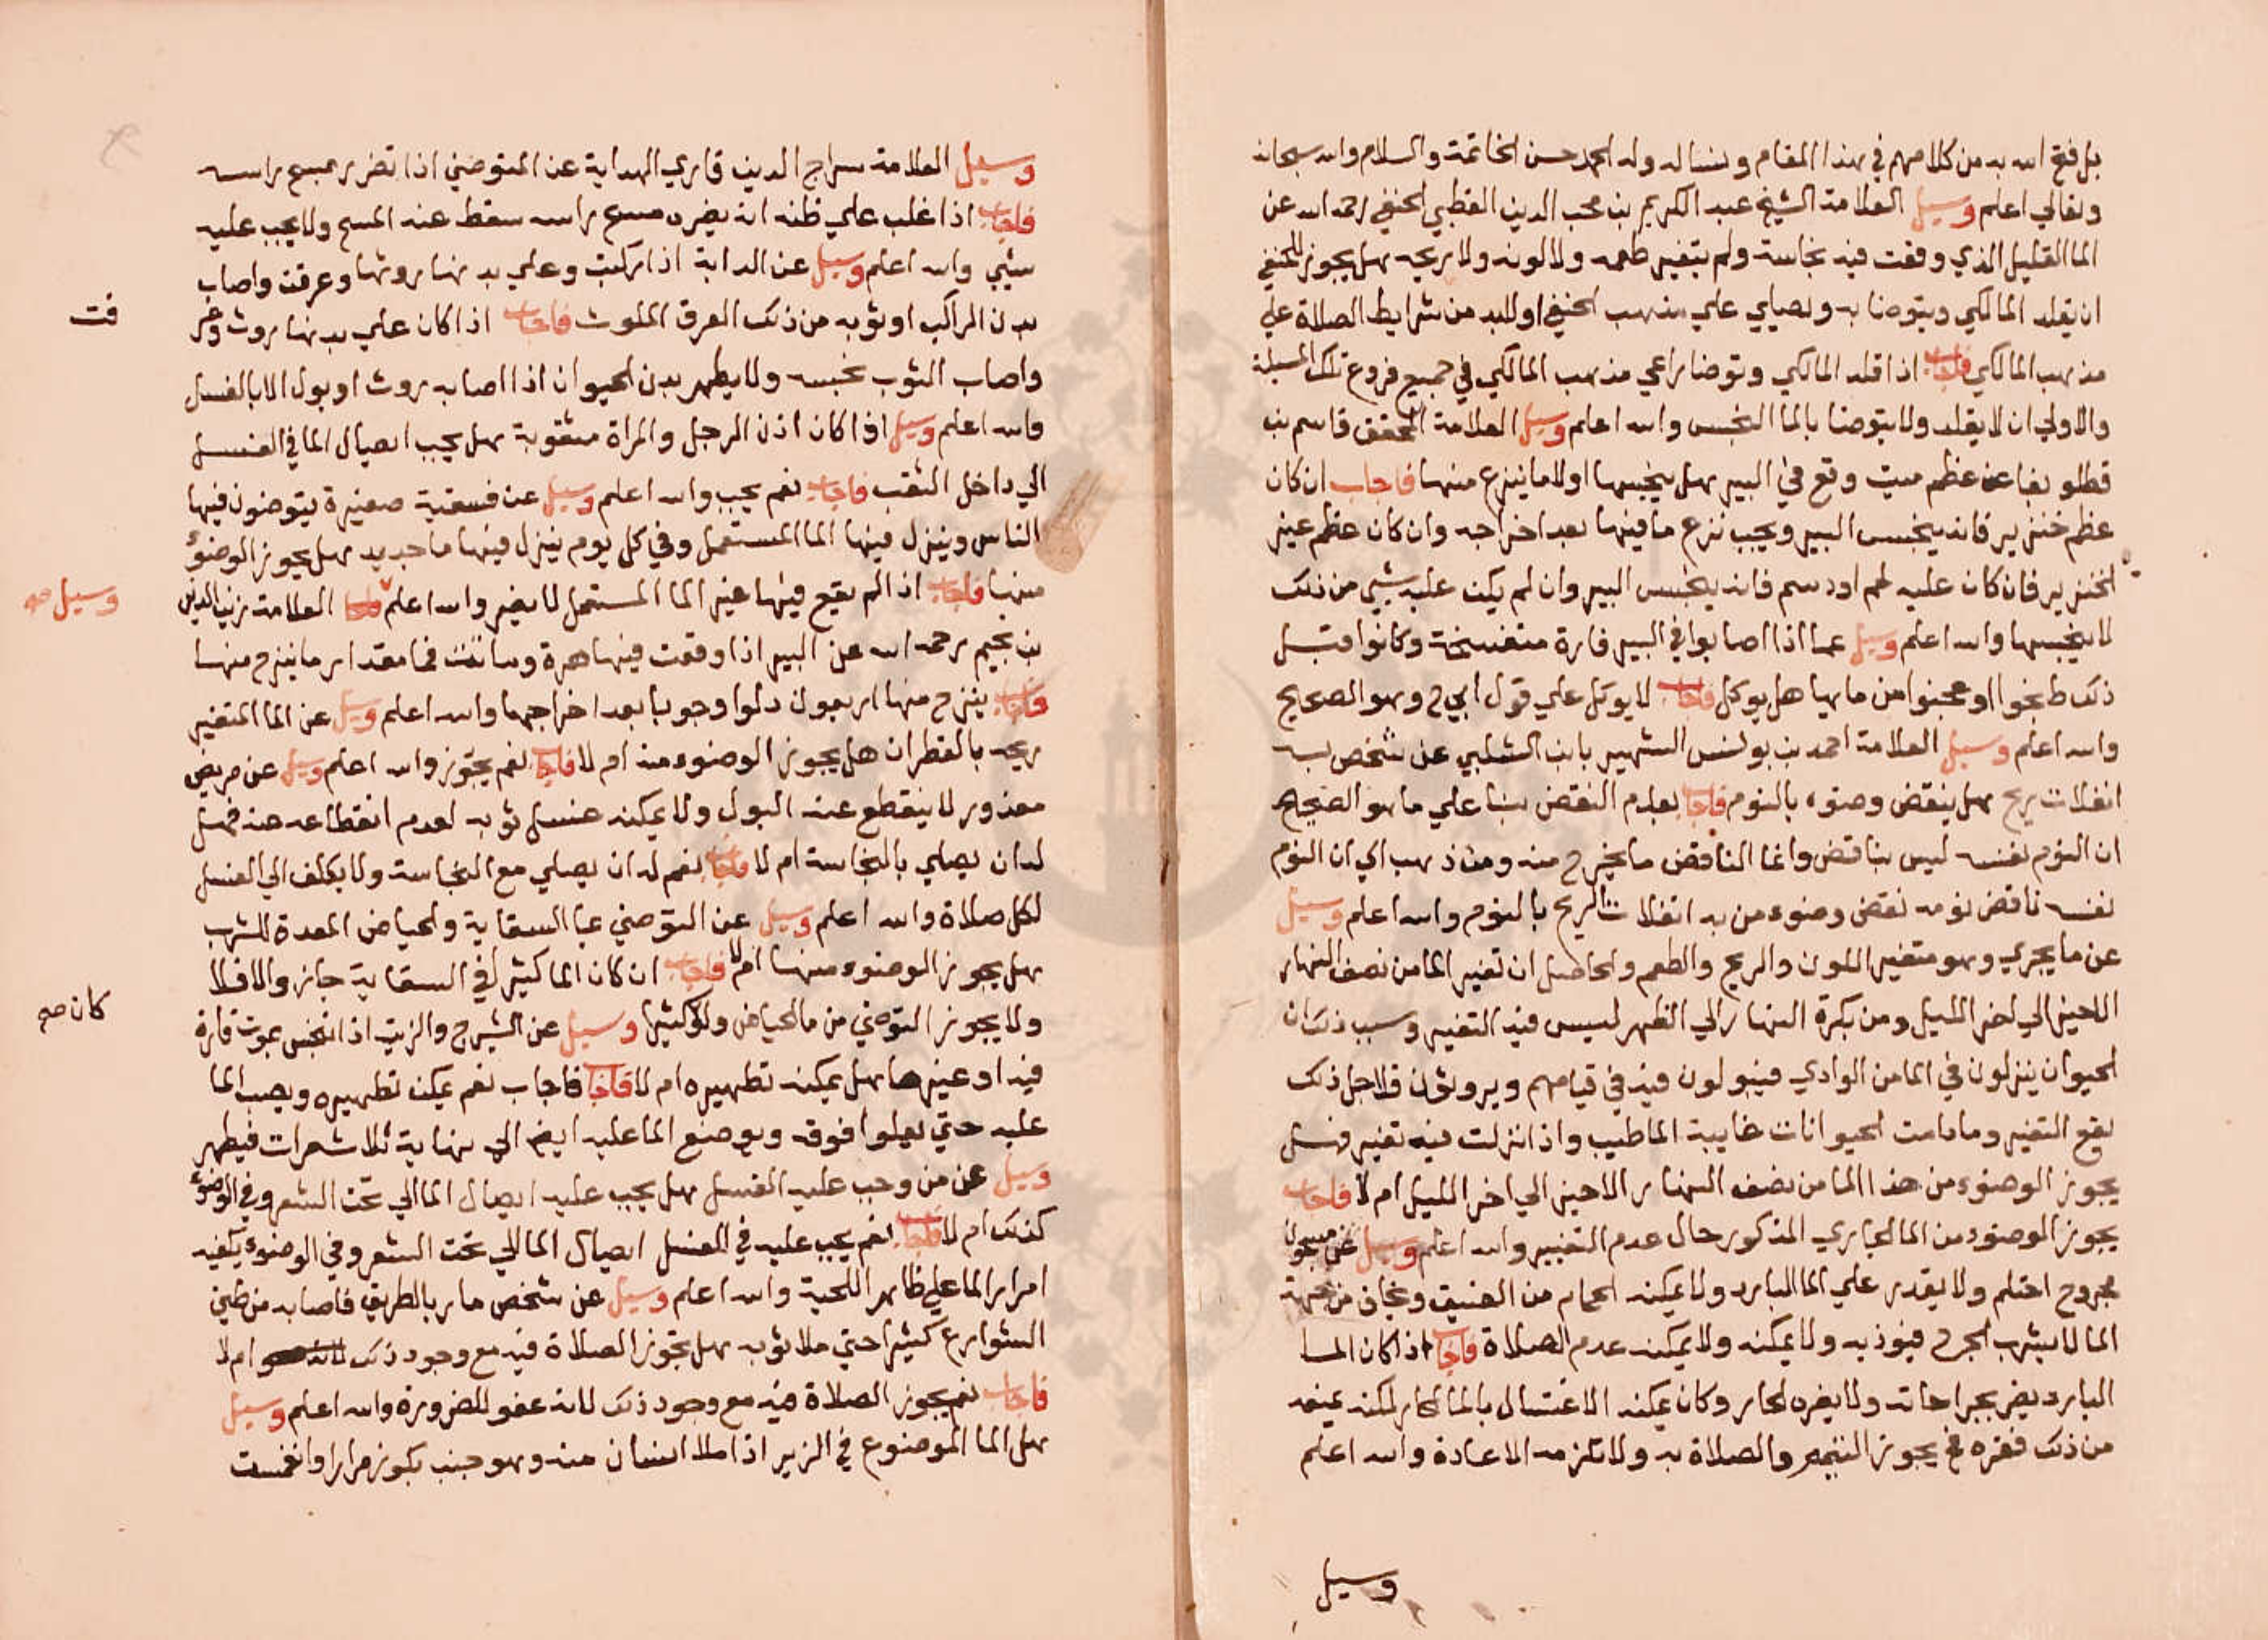 بل فتح الله به من كلامهم في هذا المقام ونساله وله الحمد حسن الخاتمة والسلام والله سبحانه
وتعالي اعلم وسيل العلامة الشيخ عبد الكريم بن محب الدين القطبي الحنفي رحمه الله عن
الما القليل الذي وقعت فيه نجاسة ولم يتغير طعمه ولا لونه ولا ريحه هل يجوز للحنفي
ان يقلد المالكي ويتوضا به ويصلي علي مذهب الحنفي او لابد من شرايط الصلاة علي
مذهب المالكي فاجاب اذا قلد المالكي وتوضا يراعي مذهب المالكي في جميع فروع تلك المسيلة
والاولي ان لا يقلد ولا يتوضا بالما النجس والله اعلم وسيل العلامة المحقق قاسم بن
قطلوبغا عن عظم ميت وقع في البير هل ينجسها اولا وما ينزح منها فاجاب ان كان
عظم خنزير فانه ينجس البير ويجب نزح ما فيها بعد اخراجه وان كان عظم غير
الخنزير فان كان عليه لحم او دسم فانه ينجس البير وان لم يكن عليه شيي من ذلك
لا ينجسها والله اعلم وسيل عما اذا اصابوا في البير فارة متفسخة وكانوا قبل
ذلك طبخوا او عجنوا من مايها هل يوكل فاجاب لا يوكل علي قول ابي ح وهو الصحيح
والله اعلم وسيل العلامة احمد بن يونس الشهير بابن الشلبي عن شخص به
انفلات ريح هل ينقض وضوه بالنوم فاجاب بعدم النقض بنا علي ما هو الصحيح
ان النوم نفسه ليس بناقض وانما الناقض ما يخرج منه ومن ذهب الي ان النوم
نفسه ناقض نومه نقض وضوء من به انفلات الريح بالنوم والله اعلم وسيل
عن ما يجري وهو متغير اللون والريح والطعم والحاصل ان تغير الما من نصف النهار
الاخير الي اخر الليل ومن بكرة النهار الي الظهر ليس فيه التغير وسبب ذلك ان
الحيوان ينزلون في الما من الوادي فيبولون فيه في قيامهم ويروثون فلاجل ذلك
يقع التغير وما دامت الحيوانات غايبة الما طيب واذا نزلت فيه تغير فهل
يجوز الوضوء من هذا الما من نصف النهار الاخير الي اخر الليل ام لا فاجاب
يجوز الوضوء من الما الجاري المذكور حال عدم التغيير والله اعلم وسيل عن مسجون
مجروح احتلم ولا يقدر علي الما البارد ولا يمكنه الحمام من الضيق ويخاف من جهة
الما لا يشرب الجرح فيوذيه ولا يمكنه ولا يمكنه عدم الصلاة فاجاب اذا كان الما
البارد يضر بجراحاته ولا يضره الحار وكان يمكنه الاغتسال بالما الحار لكنه يمنعه
من ذلك فقره فيجوز التيمم والصلاة به ولا تلزمه الاعادة والله اعلم
وسيل
وسيل العلامة سراج الدين قاري الهداية عن المتوضي اذا تضرر بمسح راسه
فاجاب اذا غلب علي ظنه انه يضره مسح راسه سقط عنه المسح ولا يجب عليه
شيي والله اعلم وسيل عن الدابة اذا ركبت وعلي بدنها روثها وعرقت واصاب
بدن الراكب او ثوبه من ذلك العرق الملوث فاجاب اذا كان علي بدنها روث وعر
قت
واصاب الثوب نجسه ولا يطهر بدن الحيوان اذا اصابه روث او بول الا بالغسل
والله اعلم وسيل اذا كان اذن الرجل والمراة مثقوبة هل يجب ايصال الما في الغسل
الي داخل الثقب فاجاب نعم يجب والله اعلم وسيل عن فسقية صغيرة يتوضون فيها
الناس وينزل فيها الما المستعمل وفي كل يوم ينزل فيها ما جديد هل يجوز الوضوء
منها فاجاب اذا لم يقع فيها غير الما المستعمل لا يضر والله اعلم العلامة زين الدين
وسيل صح
بن نجيم رحمه الله عن البير اذا وقعت فيها هرة وماتت فما مقدار ما ينزح منها
فاجاب ينزح منها اربعون دلوا وجوبا بعد اخراجها والله اعلم وسيل عن الما المتغير
ريحه بالقطران هل يجوز الوضوء منه ام لا فاجاب نعم يجوز والله اعلم وسيل عن مريض
معذور لا ينقطع عنه البول ولا يمكنه غسل ثوبه لعدم انقطاعه عنه فهل
له ان يصلي بالنجاسة ام لا فاجاب نعم له ان يصلي مع النجاسة ولا يكلف الي الغسل
لكل صلاة والله اعلم وسيل عن التوضي بما السقاية والحياض المعدة للشرب
هل يجوز الوضوء منها ام لا فاجاب ان كان الما كثير في السقاية جاز والا فلا
كان صح
ولا يجوز التوضي من ما الحياض ولو كثيرا وسيل عن الشيرج والزيت اذا تنجس بموت فارة
فيه او غيرها هل يمكنه تطهيره ام لا فاجاب فاجاب نعم يمكن تطهيره ويصب الما
عليه حتي يعلوا فوقه ويوضع الما عليه ايضا الي نهاية ثلاث مرات فيطهر
وسيل عن من وجب عليه الغسل هل يجب عليه ايصال الما الي تحت الشعر وفي الوضوء
كذلك ام لا فاجاب نعم يجب عليه في الغسل ايصال الما الي تحت الشعر وفي الوضوء يكفيه
امرار الما علي ظاهر اللحية والله اعلم وسيل عن شخص مار بالطريق فاصابه من طين
الشوارع كثيرا حتي ملا ثوبه هل تجوز الصلاة فيه مع وجود ذلك ام لا
فاجاب نعم يجوز الصلاة فيه مع وجود ذلك لانه عفو للضرورة والله اعلم وسيل
هل الما الموضوع في الزير اذا ملا انسان منه وهو جنب بكوز مرارا وانغمست